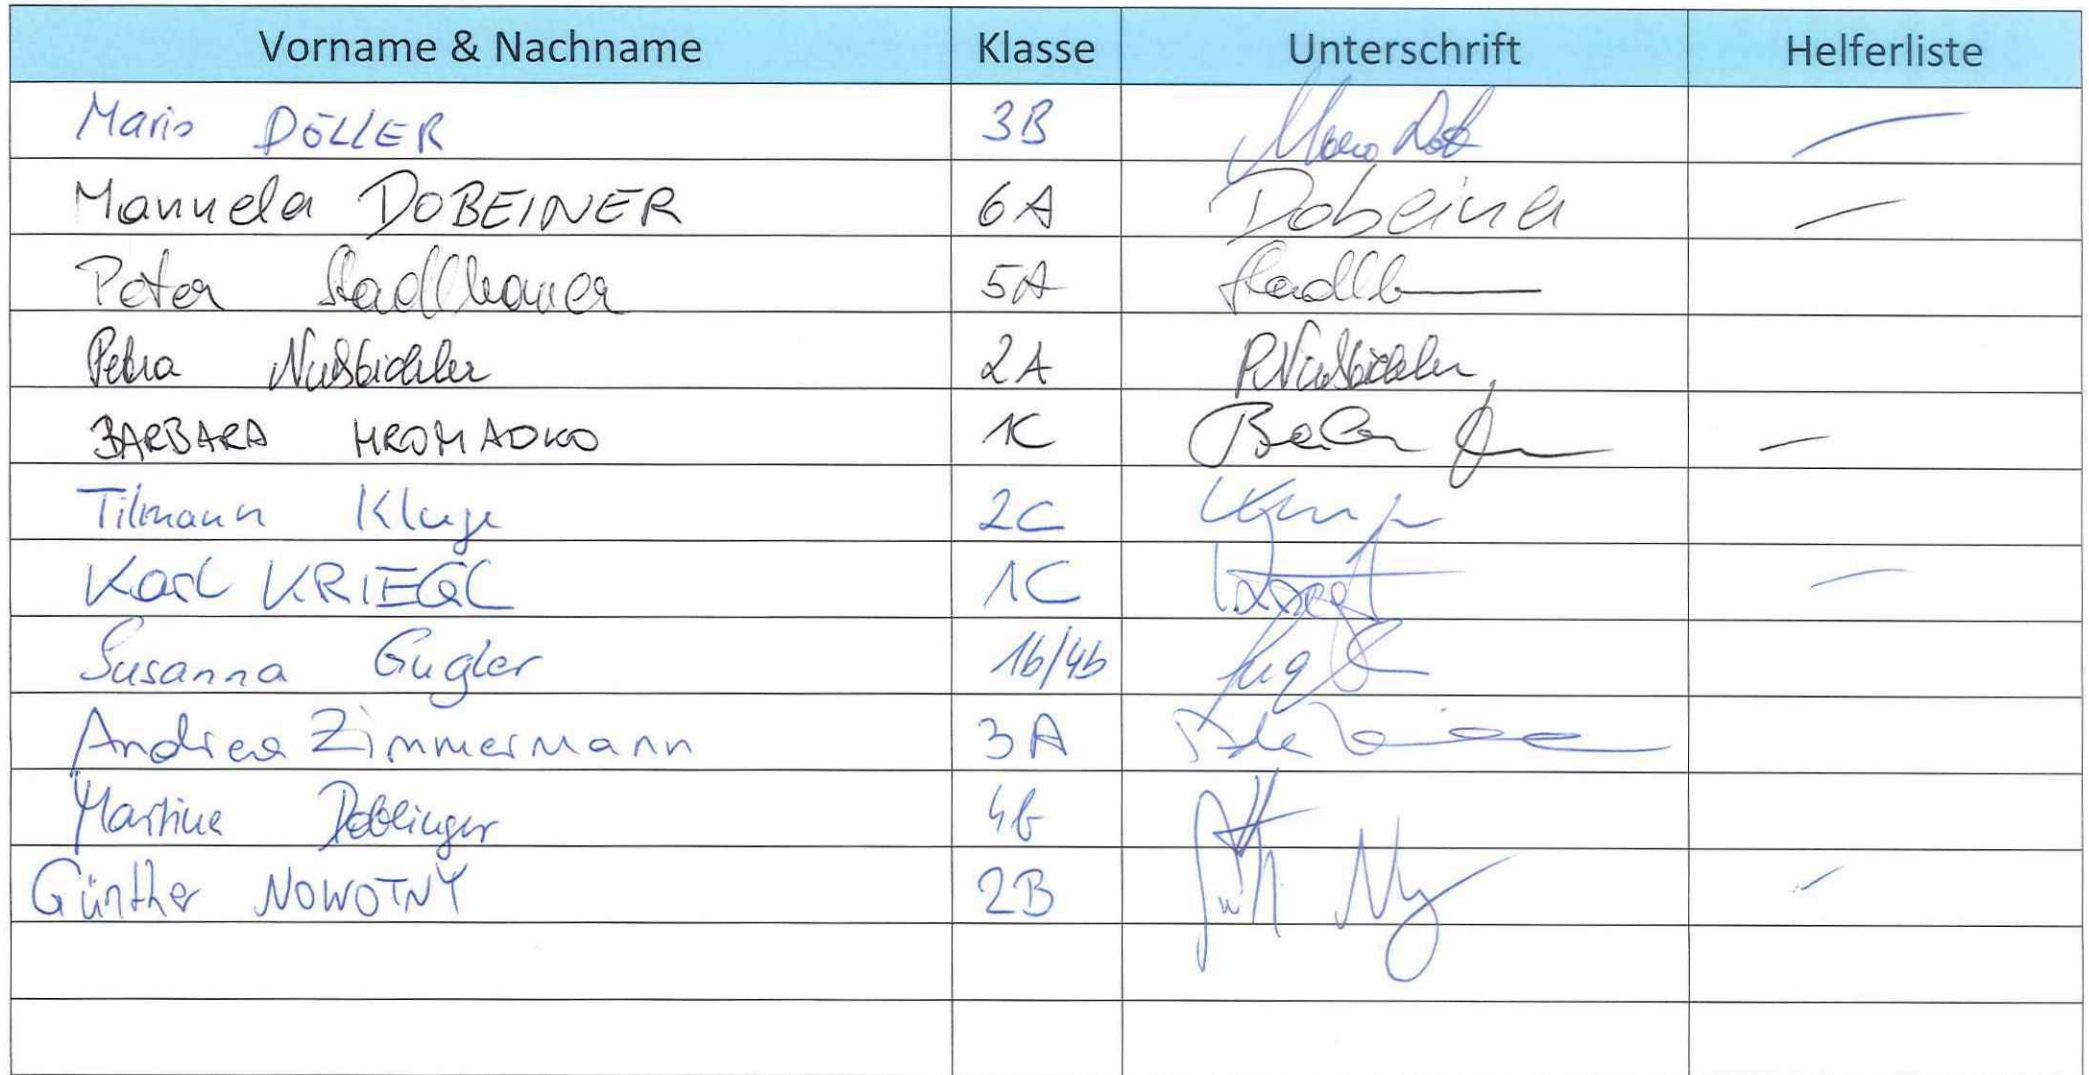 Vorname & Nachname Klasse Unterschrift Helferliste
Mario DÖLLER 3B
Manuela DOBEINER 6A Dobeiner
Peter Stadlbauer 5A
Petra Nußbichler 2A P.Nußbichler
BARBARA HROMADKO 1C
Tilmann Kluge 2C
Karl KRIEGL 1C
Susanna Gugler 1b/4b
Andrea Zimmermann 3A
Martina Doblinger 4b
Günther NOWOTNY 2B